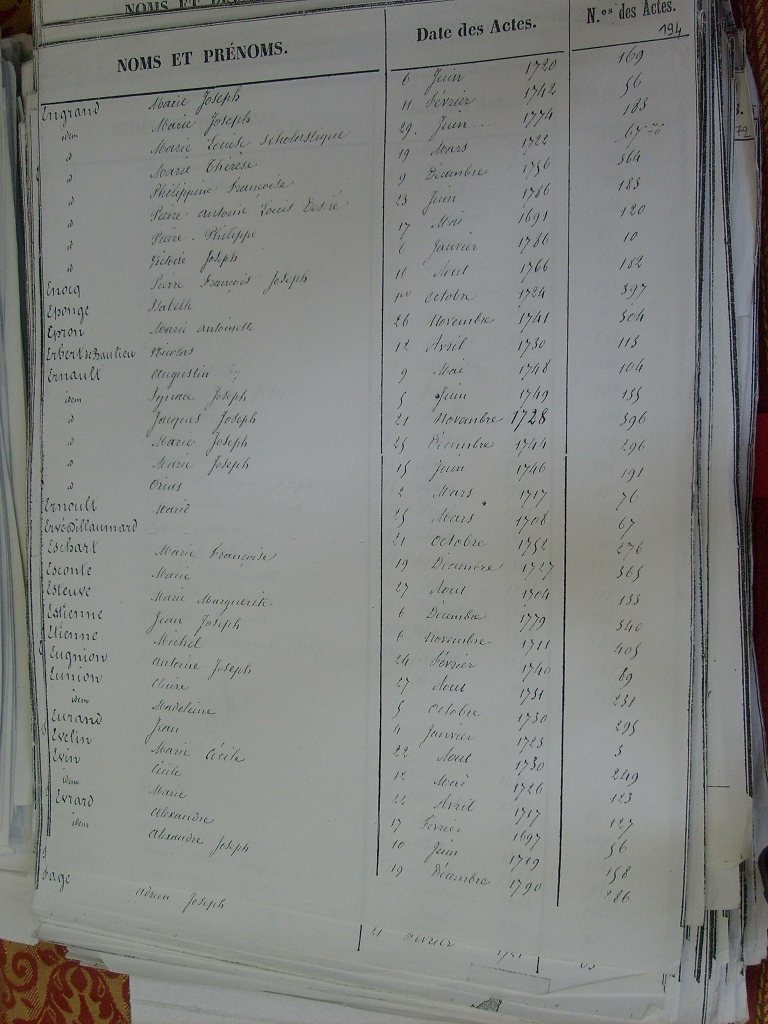 NOMS ET PRÉNOMS. Date des Actes. N.os des Actes.
194
Engrand Marie Joseph 6 Juin 1720 169
idem Marie Joseph 11 Février 1742 56
id Marie Louise Scholastique 29. Juin 1774 183
id Marie Thérèse 19 Mars 1722 67
id Philippine Françoise 9 Décembre 1756 364
id Pierre antoine Louis Désiré 23 Juin 1786 183
id Pierre Philippe 17 Mai 1691 120
id Victoire Joseph 6 Janvier 1786 10
Enocq Pierre François Joseph 11 Aout 1766 182
Eponge Isabelle 1er Octobre 1724 397
Epron Marie antoinette 26 Novembre 1741 304
Erbert de Baulieu Nicolas 12 Avril 1730 113
Ernault Augustin 9 Mai 1748 104
idem Ignace Joseph 5 Juin 1749 135
id Jacques Joseph 21 Novembre 1728 396
id Marie Joseph 25 Décembre 1744 296
id Marie Joseph 15 Juin 1746 191
id 2 Mars 1717 76
Ernoult Marie 25 Mars 1708 67
Ervé Dillaumard 21 Octobre 1752 276
Eschart Marie Françoise 19 Décembre 1727 365
Esconte Marie 27 Aout 1704 133
Esteuve Marie Marguerite 6 Décembre 1779 340
Estienne Jean Joseph 6 Novembre 1711 405
Etienne Michel 24 Février 1740 89
Eugnion Antoine Joseph 27 Aout 1731 231
Eunion Claire 5 Octobre 1730 295
idem Madeleine 4 Janvier 1723 3
Eurand Jean 22 Aout 1730 249
Evelin Marie Cécile 12 Mai 1726 123
Evin Cécile 22 Avril 1717 127
idem Marie 17 Février 1697 56
Evrard Alexandre 10 Juin 1719 158
idem Alexandre Joseph 19 Décembre 1790 286
Fage Adrien Joseph